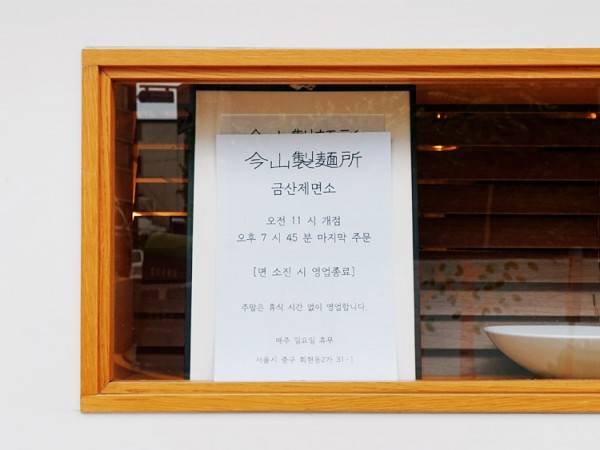 今山製麺所
금산제면소
오전 11 시 개점
오후 7 시 45 분 마지막 주문
[면 소진 시 영업종료]
주말은 휴식 시간 없이 영업합니다.
매주 일요일 휴무
서울시 중구 회현동2가 31-1